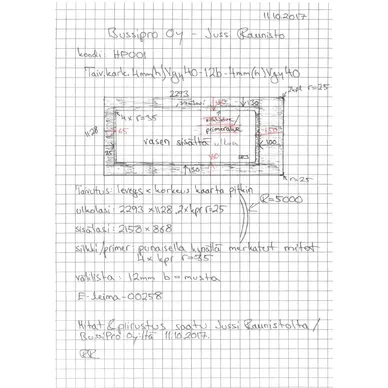 11.10.2017
Bussipro Oy - Jussi Raunisto
koodi: HP001
Taiv.kark. 4mm(h)Vgy40-12b-4mm(h)Vgy40
2293
130
r=25
4 x r=35
primer
1128
65
150
100
vasen sisältä ulkoa
130
r=25
Taivutus: leveys x korkeus kaarta pitkin
R=5000
ulkolasi: 2293 x 1128, 2xkpr r=25
sisälasi: 2153 x 868
silkki/primer punaisella kynällä merkatest mitat
4 x kpr r=35
välilista: 12mm b = musta
E-leima-00258
Mitat & piirustus saatu Jussi Raunistolta /
BussiPro Oy:ltä 11.10.2017.